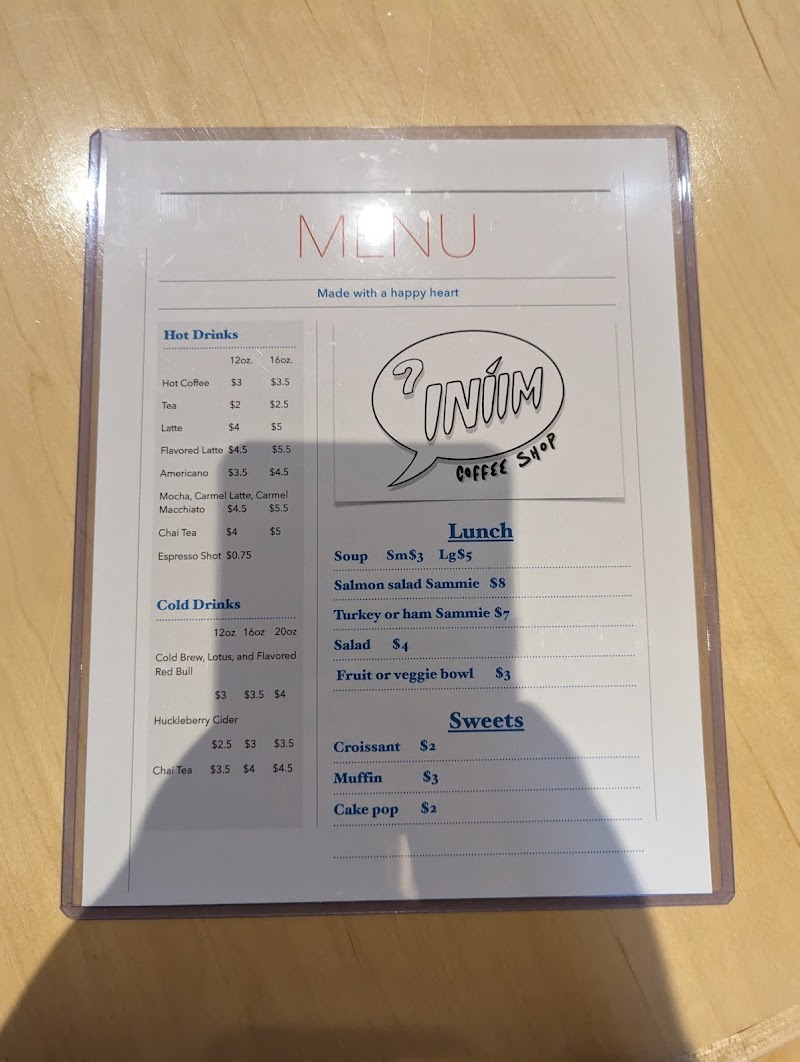 MENU
Made with a happy heart
Hot Drinks
12oz. 16oz.
Hot Coffee $3 $3.5
Tea $2 $2.5
Latte $4 $5
Flavored Latte $4.5 $5.5
Americano $3.5 $4.5
Mocha, Carmel Latte, Carmel
Macchiato $4.5 $5.5
Chai Tea $4 $5
Espresso Shot $0.75
Cold Drinks
12oz 16oz 20oz
Cold Brew, Lotus, and Flavored
Red Bull
$3 $3.5 $4
Huckleberry Cider
$2.5 $3 $3.5
Chai Tea $3.5 $4 $4.5
ʔINÍIM
COFFEE SHOP
Lunch
Soup Sm$3 Lg$5
Salmon salad Sammie $8
Turkey or ham Sammie $7
Salad $4
Fruit or veggie bowl $3
Sweets
Croissant $2
Muffin $3
Cake pop $2